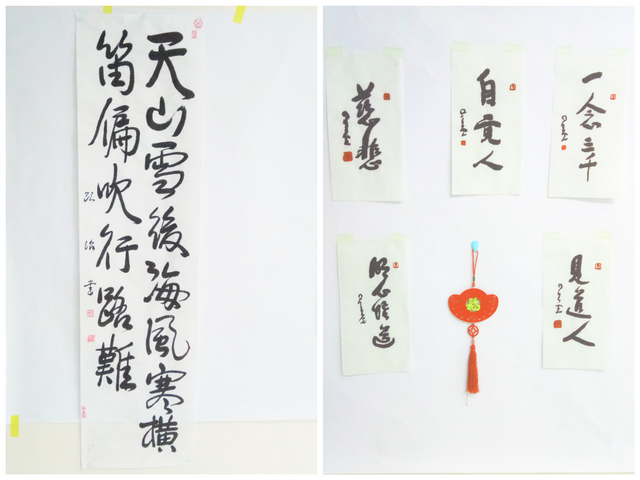 天山雪後海風寒橫
笛偏吹行路難
慈悲
自覺人
一念三千
明心道
福
見道人